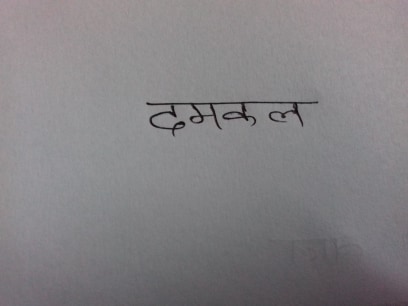 दमकल